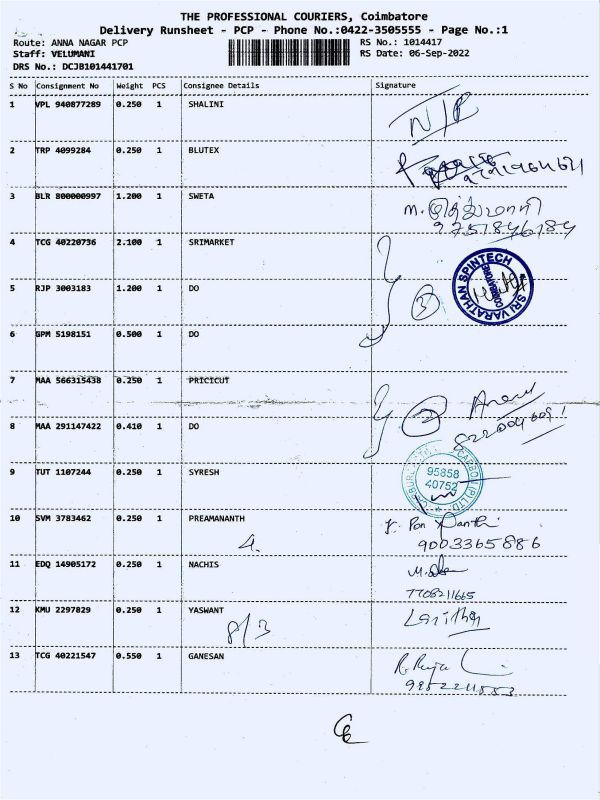 THE PROFESSIONAL COURIERS, Coimbatore
Delivery Runsheet - PCP - Phone No.:0422-3505555 - Page No.:1
Route: ANNA NAGAR PCP RS No.: 1014417
Staff: VELUMANI RS Date: 06-Sep-2022
DRS No.: DCJB101441701
S No Consignment No Weight PCS Consignee Details Signature
1 VPL 940877289 0.250 1 SHALINI N/P
2 TRP 4099284 0.250 1 BLUTEX
3 BLR 800000997 1.200 1 SWETA
9751846184
4 TCG 40220736 2.100 1 SRIMARKET
SRI VARATHAN SPINTECH
COIMBATORE
5 RJP 3003183 1.200 1 DO 3
6 GPM 5198151 0.500 1 DO
7 MAA 566315438 0.250 1 PRICICUT
8 MAA 291147422 0.410 1 DO 2
9 TUT 1107244 0.250 1 SYRESH
95858
40752
10 SVM 3783462 0.250 1 PREAMANANTH
4. 9003365886
11 EDQ 14905172 0.250 1 NACHIS
7708211665
12 KMU 2297829 0.250 1 YASWANT
8/3
13 TCG 40221547 0.550 1 GANESAN